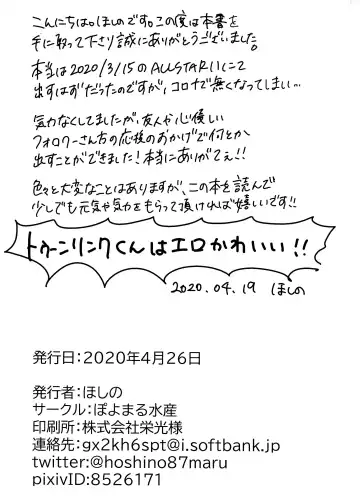 こんにちは。ほしのです。この度は本書を
手に取って下さり誠にありがとうございました。
本当は2020/3/15のALLSTARにここで
出すはずだったのですが、コロナで無くなってしまい…
気力なくしてましたが、友人や心優しい
フォロワーさん方の応援のおかげで何とか
出すことができました!本当にありがてぇ!!
色々と大変なことはありますが、この本を読んで
少しでも元気や気力をもらって頂ければ嬉しいです!!
トゥーンリンクくんはエロかわいい!!
2020.04.19 ほしの
発行日:2020年4月26日
発行者:ほしの
サークル:ぽよまる水産
印刷所:株式会社栄光様
連絡先:gx2kh6spt@i.softbank.jp
twitter:@hoshino87maru
pixivID:8526171